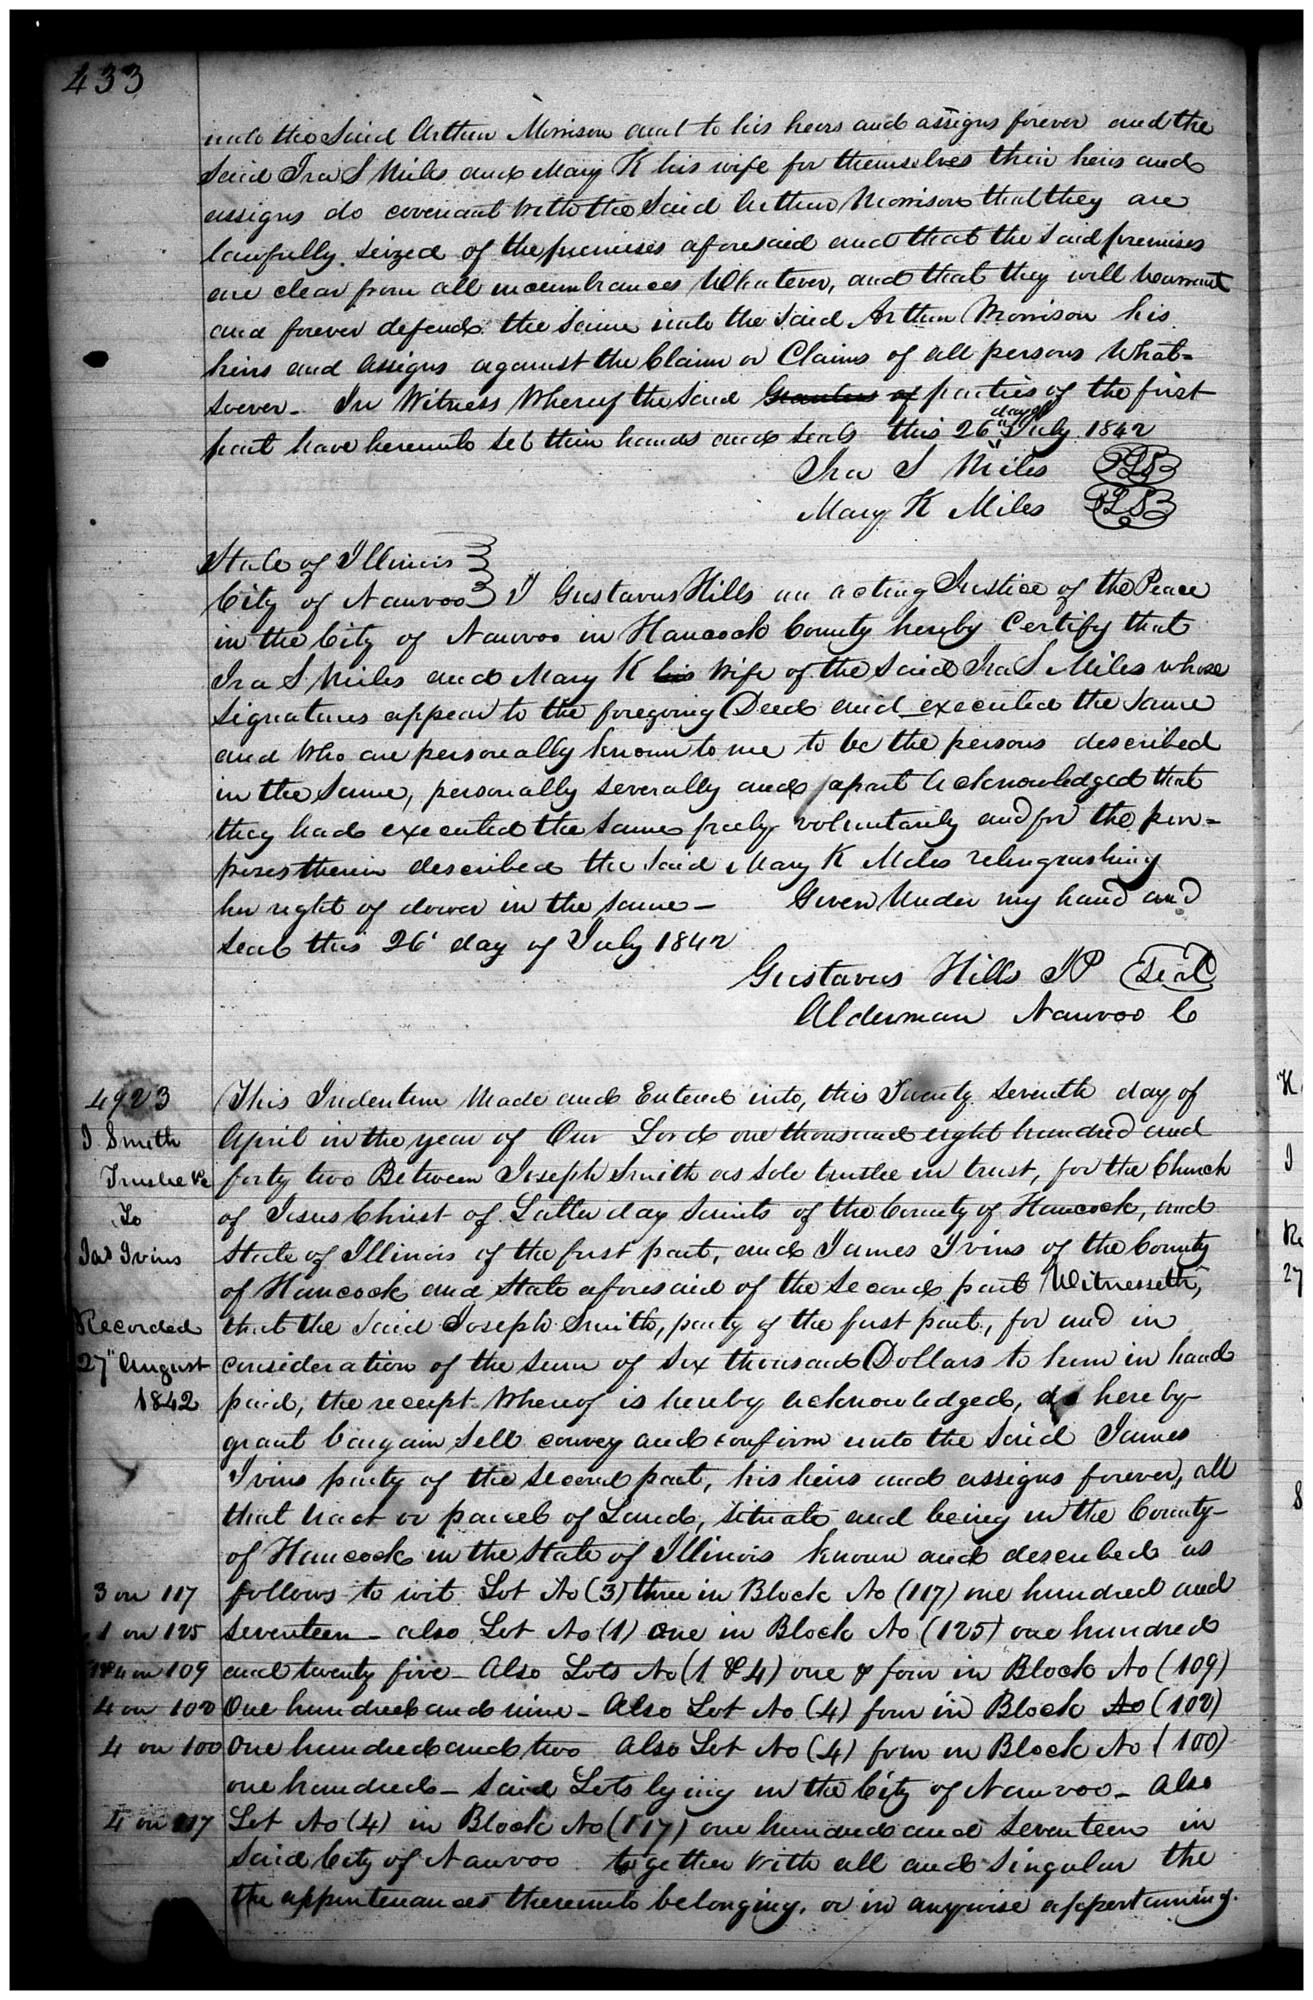 433
unto the Said Arthur Morrison and to his heirs and assigns forever and the
Said Ira S Miles and Mary K his wife for themselves their heirs and
assigns do covenant with the Said Arthur Morrison that they are
lawfully Seized of the premises aforesaid and that the Said premises
are clear from all incumbrances Whatever, and that they will warrant
and forever defend the Same unto the Said Arthur Morrison his
heirs and assigns against the Claim or Claims of all persons What-
soever - In Witness Whereof the Said Grantors of parties of the first
day of
part have hereunto set their hands and seals this 26" July 1842
Ira S Miles LS
Mary K Miles LS
State of Illinois }
City of Nauvoo } I Gustavus Hills an acting Justice of the Peace
in the City of Nauvoo in Hancock County hereby Certify that
Ira S Miles and Mary K his Wife of the Said Ira S Miles whose
Signatures appear to the foregoing Deed and executed the Same
and Who are personally known to me to be the persons described
in the Same, personally severally and apart acknowledged that
they had executed the Same freely voluntarily and for the pur-
poses therein described the Said Mary K Miles relinquishing
her right of dower in the Same - Given Under my hand and
Seal this 26' day of July 1842
Gustavus Hills JP Seal
Alderman Nauvoo C
4923
J Smith
Trustee &c
To
Jas Ivins
Recorded
27" August
1842
This Indenture Made and Entered into, this Twenty Seventh day of
April in the year of Our Lord one thousand eight hundred and
forty two Between Joseph Smith as Sole trustee in trust, for the Church
of Jesus Christ of Latter day Saints of the County of Hancock, and
State of Illinois of the first part, and James Ivins of the County
of Hancock and State aforesaid of the Second part Witnesseth,
that the Said Joseph Smith, party of the first part, for and in
consideration of the Sum of Six thousand Dollars to him in hand
paid, the receipt Whereof is hereby acknowledged, do hereby
grant bargain Sell convey and confirm unto the Said James
Ivins party of the Second part, his heirs and assigns forever, all
that tract or parcel of Land, Situate and being in the County
of Hancock in the State of Illinois known and described as
3 on 117 follows to wit Lot No (3) three in Block No (117) one hundred and
1 on 125 Seventeen - also Lot No (1) one in Block No (125) one hundred
1&4 on 109 and twenty five - Also Lots No (1 & 4) one & four in Block No (109)
4 on 102 One hundred and nine - Also Lot No (4) four in Block No (102)
4 on 100 One hundred and two Also Lot No (4) four in Block No (100)
one hundred - Said Lots lying in the City of Nauvoo - Also
4 on 117 Lot No (4) in Block No (117) one hundred and Seventeen in
Said City of Nauvoo together With all and Singular the
the appurtenances thereunto belonging, or in anywise appertaining.